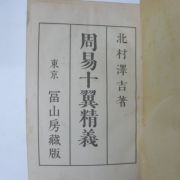 北村澤吉著
周易十翼精義
東京 冨山房藏版